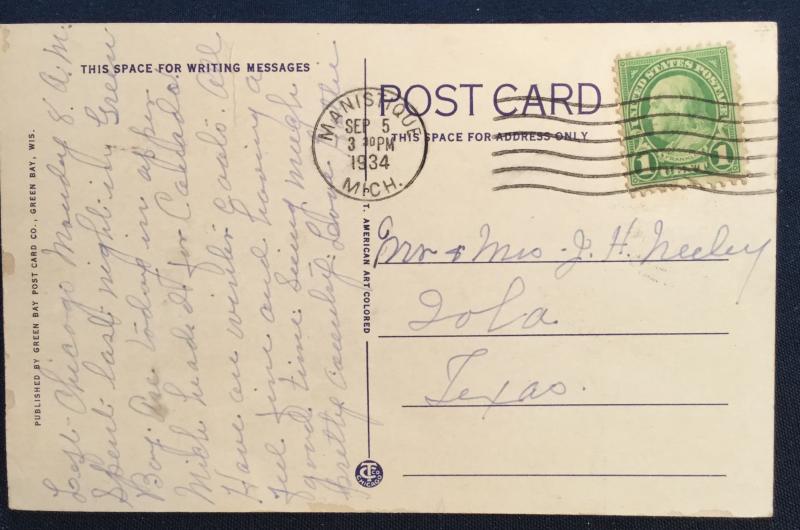 THIS SPACE FOR WRITING MESSAGES
POST CARD
THIS SPACE FOR ADDRESS ONLY
MANISTIQUE
SEP 5
3 30 PM
1934
MICH.
UNITED STATES POSTAGE
FRANKLIN
1 CENT 1
Left Chicago Monday 8 A.M.
Spent last night in Green
Bay. Are today in upper
Mich headed for Canada.
Have on winter coats. All
feel fine and having a
good time. Seeing much
pretty country. Love
Mr & Mrs. J. H. Neeley
Iola
Texas.
PUBLISHED BY GREEN BAY POST CARD CO., GREEN BAY, WIS.
T. AMERICAN ART COLORED
CT CO
CHICAGO